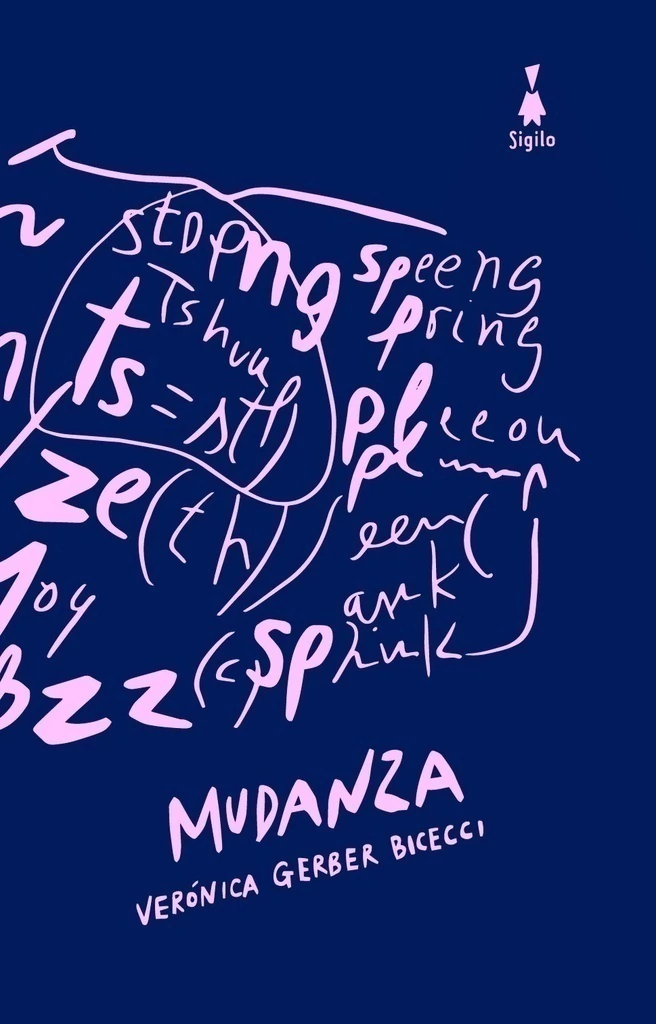 Sigilo
stopng speeng
Tshuup pring
ts = sth
pleeou
ze(th)
een(
ark
Joy
Bzz (c) sp
MUDANZA
VERÓNICA GERBER BICECCI